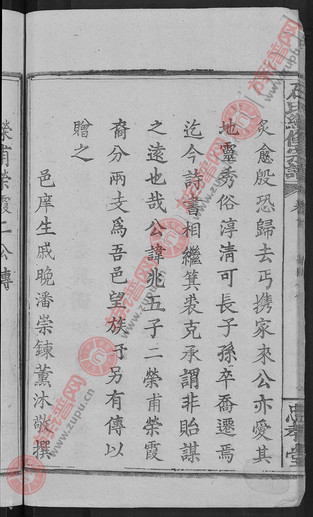 石氏續修宗譜
忠孝堂
炙愈殷恐歸去丐携家來公亦愛其
地靈秀俗淳清可長子孫卒喬遷焉
迄今詩書相繼箕裘克承謂非貽謀
之遠也哉公諱兆五子二榮甫榮霞
裔分兩支爲吾邑望族予另有傳以
贈之
邑庠生戚晚潘崇鍊薰沐敬撰
榮甫榮霞二公傳
族譜网
www.zupu.cn